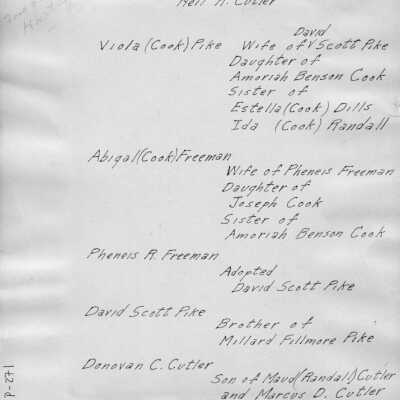 Neil A. Cutler
David
Viola (Cook) Pike Wife of Scott Pike
Daughter of
Amoriah Benson Cook
Sister of
Estella (Cook) Dills
Ida (Cook) Randall
Abigal (Cook) Freeman
Wife of Pheneis Freeman
Daughter of
Joseph Cook
Sister of
Amoriah Benson Cook
Pheneis R. Freeman
Adopted
David Scott Pike
David Scott Pike
Brother of
Millard Fillmore Pike
Donovan C. Cutler
Son of Maud (Randall) Cutler
and Marcus D. Cutler